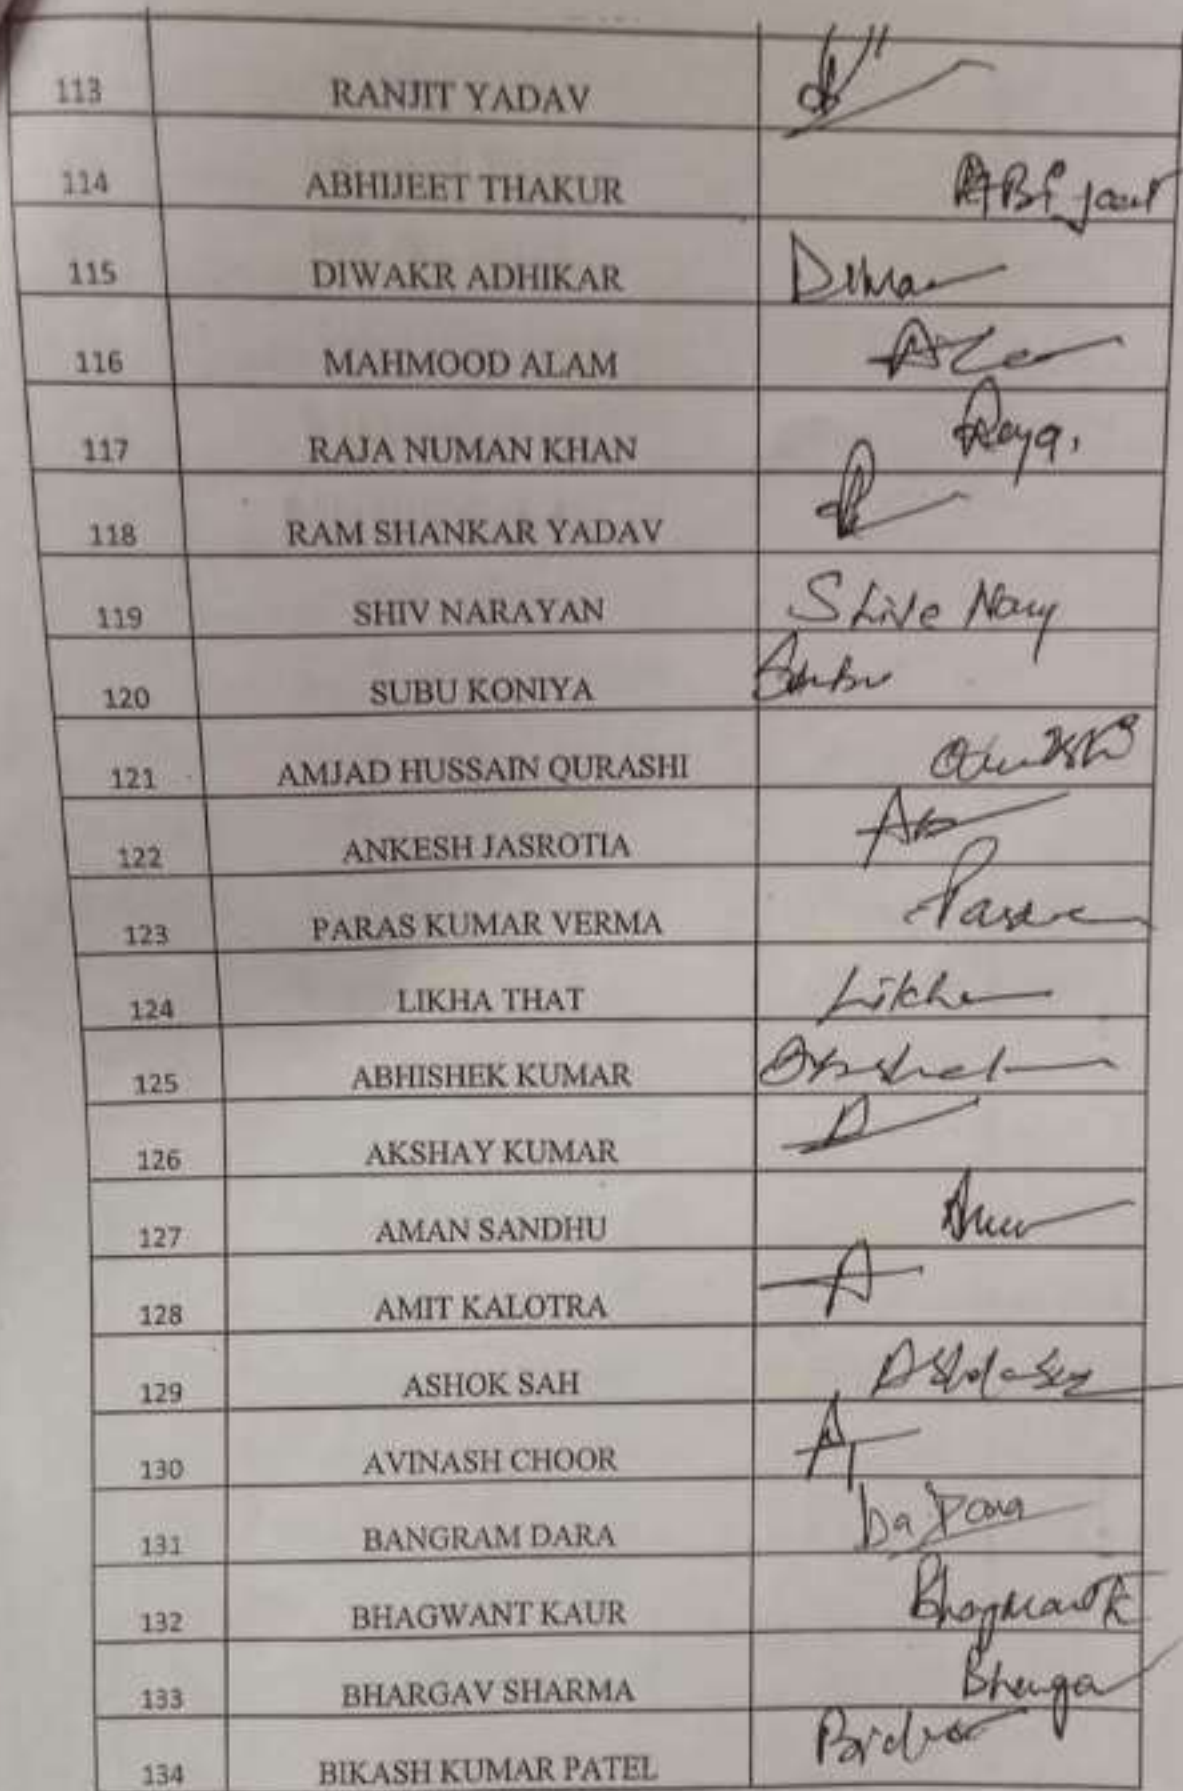 113 RANJIT YADAV
114 ABHIJEET THAKUR
115 DIWAKR ADHIKAR Diwa
116 MAHMOOD ALAM
117 RAJA NUMAN KHAN Raja
118 RAM SHANKAR YADAV
119 SHIV NARAYAN Shive Nary
120 SUBU KONIYA Subu
121 AMJAD HUSSAIN QURASHI
122 ANKESH JASROTIA
123 PARAS KUMAR VERMA Paras
124 LIKHA THAT Likha
125 ABHISHEK KUMAR
126 AKSHAY KUMAR
127 AMAN SANDHU
128 AMIT KALOTRA A
129 ASHOK SAH
130 AVINASH CHOOR
131 BANGRAM DARA
132 BHAGWANT KAUR Bhagwant K
133 BHARGAV SHARMA Bharga
134 BIKASH KUMAR PATEL